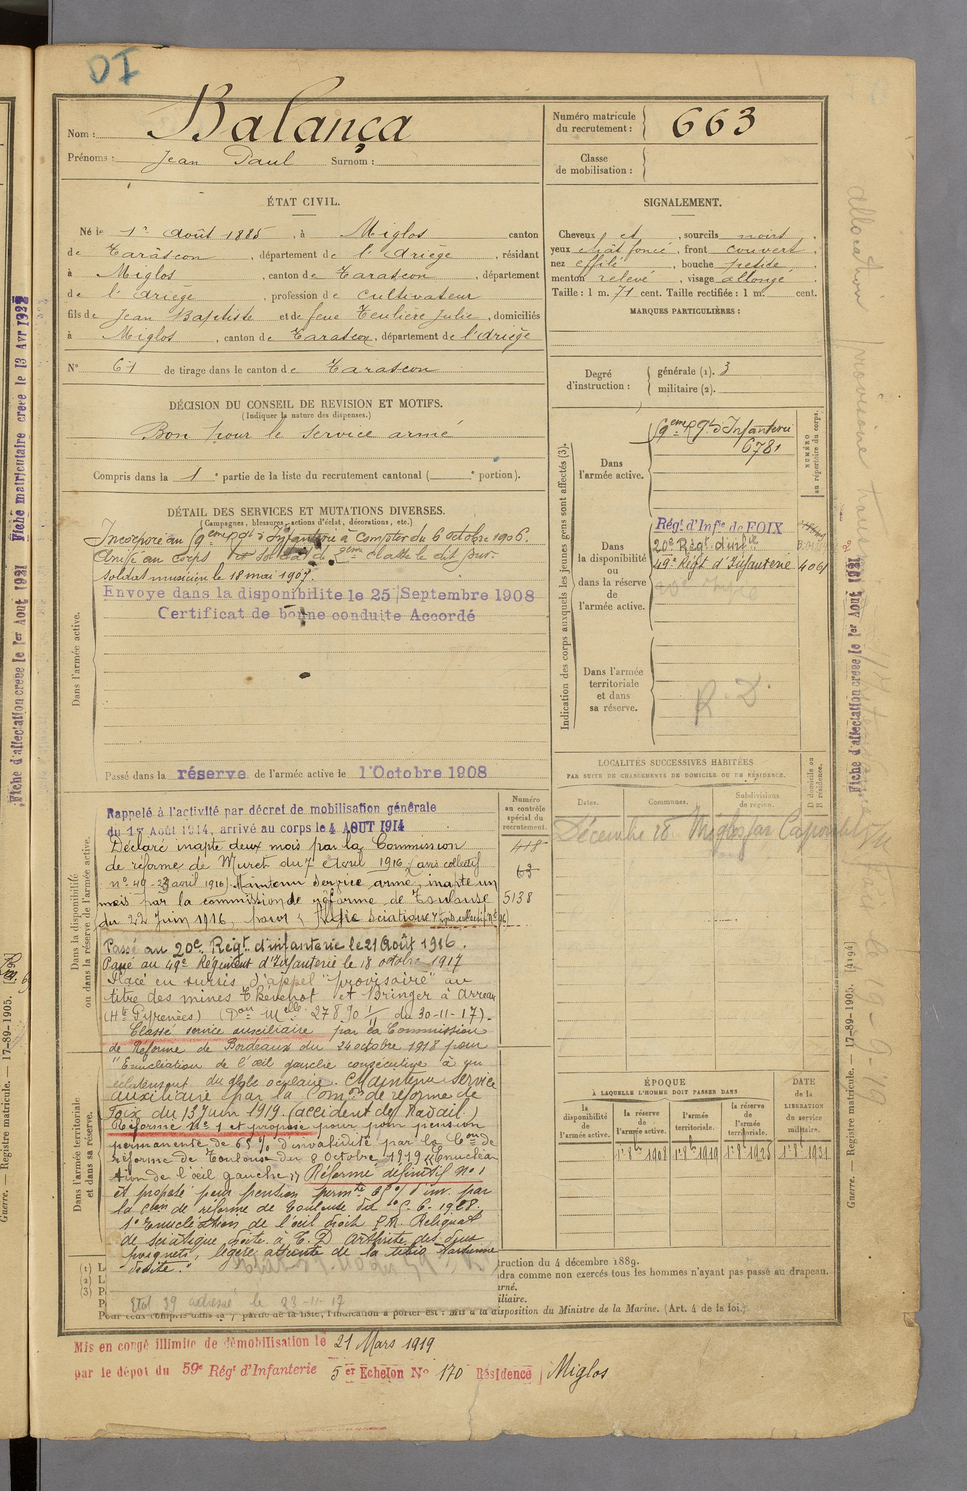 DI
Nom : Balança
Prénoms : Jean Paul Surnom :
Numéro matricule du recrutement : 663
Classe de mobilisation :
ÉTAT CIVIL.
Né le 1er Août 1885, à Miglos canton
de Tarascon, département de l'Ariège, résidant
à Miglos, canton de Tarascon, département
de l'Ariège, profession de cultivateur
fils de Jean Baptiste et de feue Teulière Julie, domiciliés
à Miglos, canton de Tarascon, département de l'Ariège
N° 61 de tirage dans le canton de Tarascon
SIGNALEMENT.
Cheveux et, sourcils noirs.
yeux chat foncé, front couvert.
nez effilé, bouche petite.
menton relevé, visage allongé.
Taille : 1 m. 71 cent. Taille rectifiée : 1 m. cent.
MARQUES PARTICULIÈRES :
Degré d'instruction : générale (1). 3
militaire (2).
DÉCISION DU CONSEIL DE REVISION ET MOTIFS.
(Indiquer la nature des dispenses.)
Bon pour le service armé
Compris dans la 1e partie de la liste du recrutement cantonal ( e portion).
DÉTAIL DES SERVICES ET MUTATIONS DIVERSES.
(Campagnes, blessures, actions d'éclat, décorations, etc.)
Incorporé au 59eme Rgt d'Infanterie à compter du 6 octobre 1906.
Arrivé au corps et soldat de 2eme classe le dit jour.
soldat musicien le 18 mai 1907.
Envoyé dans la disponibilité le 25 Septembre 1908
Certificat de bonne conduite Accordé
Dans l'armée active.
Passé dans la réserve de l'armée active le 1 Octobre 1908
Indication des corps auxquels les jeunes gens sont affectés (3).
NUMÉRO au répertoire du corps.
Dans l'armée active.
59eme Rgt d'Infanterie
6781
Dans la disponibilité ou dans la réserve de l'armée active.
Régt d'Infie de FOIX
20e Régt d'infie
49e Régt d'Infanterie 4061
Dans l'armée territoriale et dans sa réserve.
R. D.
LOCALITÉS SUCCESSIVES HABITÉES
PAR SUITE DE CHANGEMENTS DE DOMICILE OU DE RÉSIDENCE.
Dates. Communes. Subdivisions de région. D domicile ou R résidence.
Décembre 28 Miglos par Capoulet
Numéro au contrôle spécial du recrutement.
418
63
5138
Dans la disponibilité ou dans la réserve de l'armée active.
Rappelé à l'activité par décret de mobilisation générale
du 1er Août 1914, arrivé au corps le 4 AOUT 1914
Déclaré inapte deux mois par la Commission
de réforme de Muret du 7 Avril 1916 (avis collectif
n° 49 - 23 avril 1916). Maintenu service armé, inapte un
mois par la commission de réforme de Toulouse
du 22 Juin 1916, pour
Passé au 20e Régt d'infanterie le 21 Août 1916.
Passé au 49e Régiment d'Infanterie le 18 octobre 1917
Placé en sursis d'appel "provisoire" au
titre des mines et Bringer à Arreau
(Htes Pyrénées) (Don Melle 27890 1/11 du 30-11-17).
Classé service auxiliaire par la Commission
de Réforme de Bordeaux du 24 octobre 1918 pour
"Enucléation de l'œil gauche consécutive à un
éclatement du globe oculaire. Maintenu service
auxiliaire par la Comon de réforme de
Foix du 13 Juin 1919. (accident de travail)
Réformé N° 1 et proposé pour pension
permanente de 65% d'invalidité par la Con de
réforme de Toulouse du 8 Octobre 1919 "Enucléa
tion de l'œil gauche". Réformé définitif n° 1
et proposé pour pension permte 65% d'inv. par
la Cion de réforme de Toulouse du 6. 1928.
1° Enucléation de l'œil droit P.R. Reliquat
de sciatique droite. à T. D. Arthrite des deux
poignets, légère atteinte de la tibio tarsienne
droite."
Dans l'armée territoriale et dans sa réserve.
ÉPOQUE
À LAQUELLE L'HOMME DOIT PASSER DANS
la disponibilité de l'armée active. la réserve de l'armée active. l'armée territoriale. la réserve de l'armée territoriale.
DATE de la LIBÉRATION du service militaire.
1er 8bre 1908 1er 8bre 1919 1er 8bre 1925 1er 8bre 1931
(1) L
(2) L
(3) P
P
truction du 4 décembre 1889.
dra comme non exercés tous les hommes n'ayant pas passé au drapeau.
rmé.
iliaire.
Etat 39 adressé le 23-11-17
disposition du Ministre de la Marine. (Art. 4 de la loi.)
Mis en congé illimité de démobilisation le 21 Mars 1919
par le dépôt du 59e Régt d'Infanterie 5er Echelon N° 170 Résidence Miglos
Fiche matriculaire créée le 13 Avr 1928
Fiche d'affectation créée le 1er Août 1921
Guerre. — Registre matricule. — 17-89-1905.
Fiche d'affectation créée le 1er Août 1921
Guerre. — Registre matricule. — 17-89-1905. [4194]
allocation provisoire